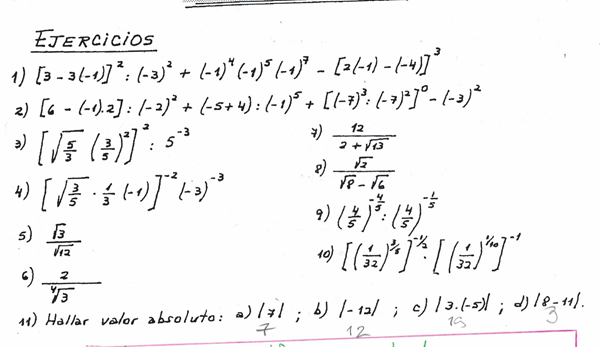 EJERCICIOS
1) [3 - 3(-1)]² : (-3)² + (-1)⁴ (-1)⁵ (-1)⁷ - [2(-1) - (-4)]³
2) [6 - (-1).2] : (-2)² + (-5+4) : (-1)⁵ + [(-7)³ : (-7)²]⁰ - (-3)²
3) [√(5/3) (3/5)²]² : 5⁻³
4) [√(3/5) · 1/3 (-1)]⁻² (-3)⁻³
5) √3/√12
6) 2/⁴√3
7) 12/(2 + √13)
8) √2/(√8 - √6)
9) (4/5)^(-4/5) : (4/5)^(-1/5)
10) [(1/32)^(3/5)]^(-1/2) · [(1/32)^(1/10)]⁻¹
11) Hallar valor absoluto: a) |7| ; b) |-12| ; c) |3.(-5)| ; d) |8-11|.
7 12 15 3